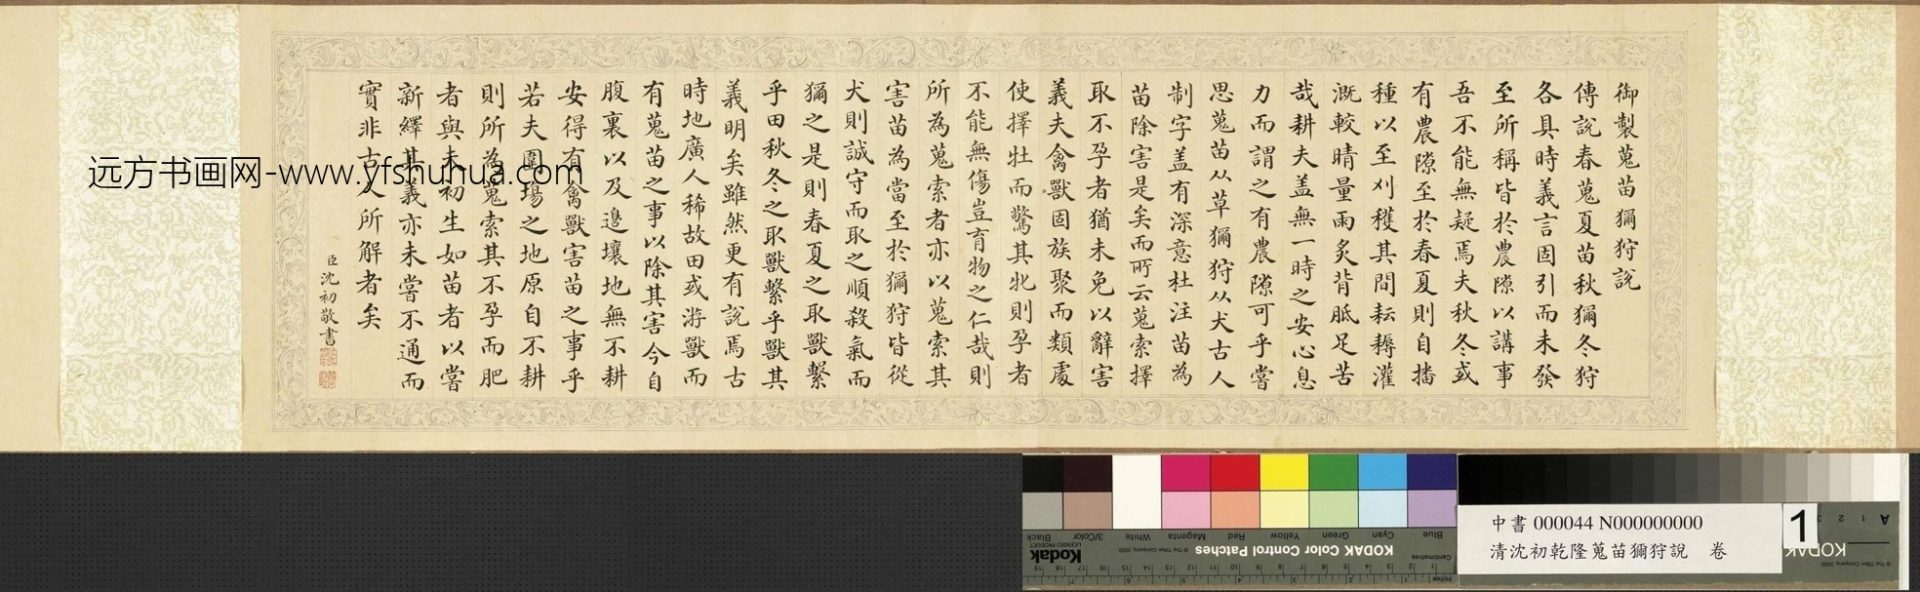 御製蒐苗獮狩說
傳說春蒐夏苗秋獮冬狩
各具時義言固引而未發
至所稱皆於農隙以講事
吾不能無疑焉夫秋冬或
有農隙至於春夏則自播
種以至刈穫其間耘耨灌
溉較晴量雨炙背胝足苦
哉耕夫盖無一時之安心息
力而謂之有農隙可乎嘗
思蒐苗从草獮狩从犬古人
制字盖有深意杜注苗為
苗除害是矣而所云蒐索擇
取不孕者猶未免以辭害
義夫禽獸固族聚而類處
使擇牡而驚其牝則孕者
不能無傷豈育物之仁哉則
所為蒐索者亦以蒐索其
害苗為當至於獮狩皆從
犬則誠守而取之順殺氣而
獮之是則春夏之取獸繫
乎田秋冬之取獸繫乎獸其
義明矣雖然更有說焉古
時地廣人稀故田或游獸而
有蒐苗之事以除其害今自
腹裏以及邊壤地無不耕
安得有禽獸害苗之事乎
若夫圍場之地原自不耕
則所為蒐索其不孕而肥
者與未初生如苗者以嘗
新繹其義亦未嘗不通而
實非古人所解者矣
臣沈初敬書
远方书画网-www.yfshuhua.com
中書 000044 N000000000
清沈初乾隆蒐苗獮狩說 卷
1
Blue Cyan Green Yellow Red Magenta White 3/Color Black
KODAK Color Control Patches
Kodak
LICENSED PRODUCT
© The Tiffen Company, 2000
Centimetres
Inches
KODAK
A 1 2 3